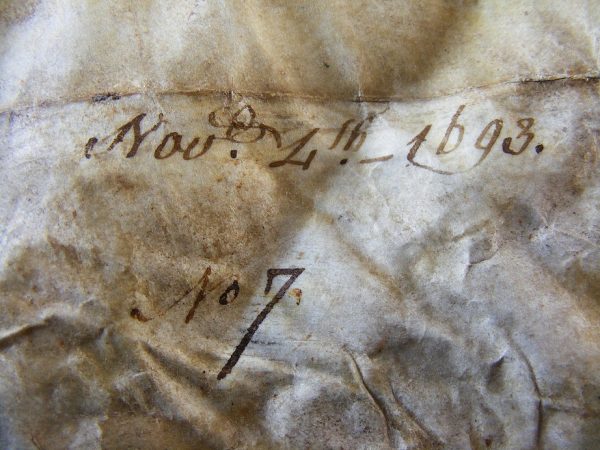 Novr. 4th- 1693.
No 7